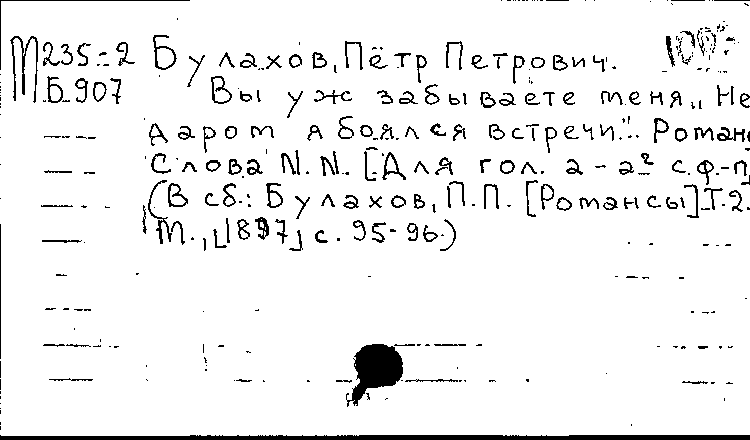 М235-2 Булахов, Пётр Петрович. 100-
Б907 Вы уж забываете меня „Не
даром я боялся встречи". Романс
Слова N.N. [Для гол. a - a² с.ф.-п
(В сб.: Булахов, П.П. [Романсы] Т.2.
М., [1897] с. 95-96.)